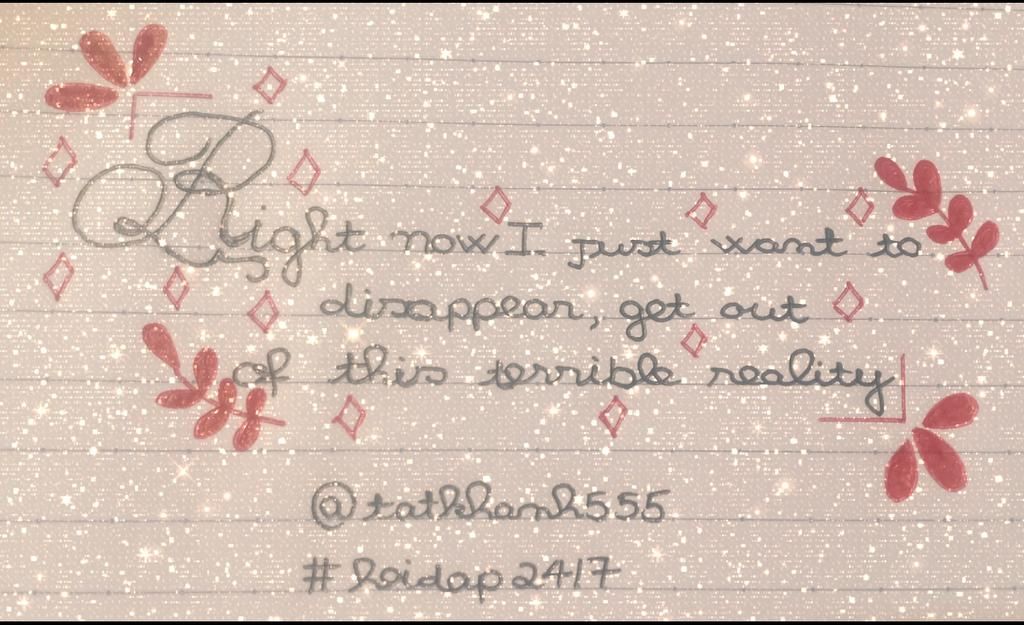 Right now I just want to
disappear, get out
of this terrible reality
@tatkhanh555
#hoidap247